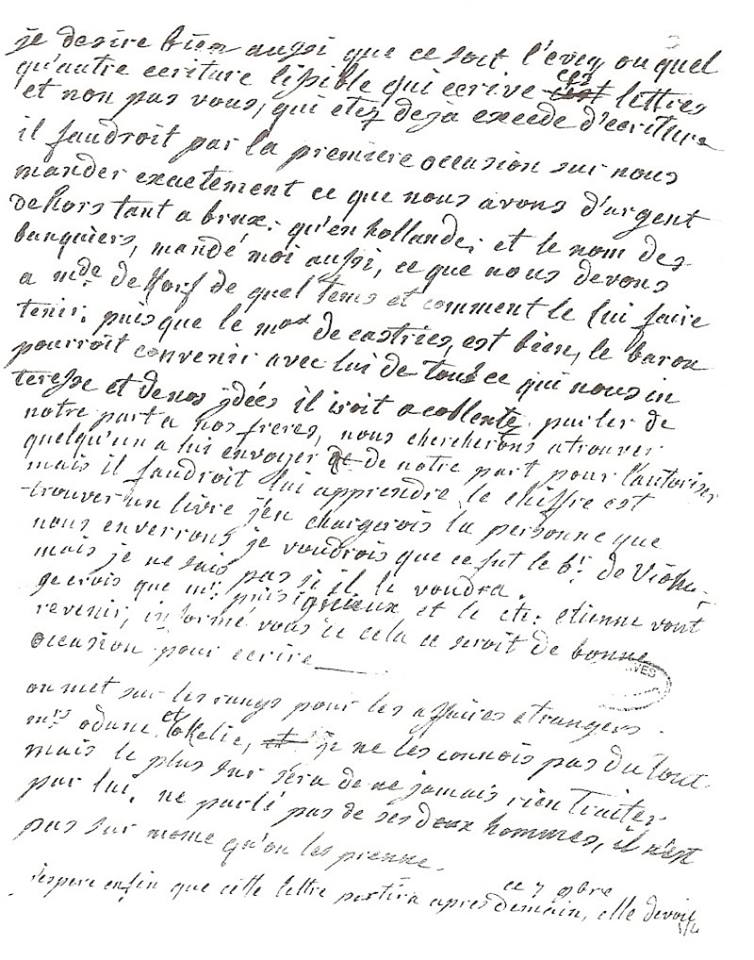 je desire bien aussi que ce soit l'eveq ou quel
qu'autre ecriture lisible qui ecrive ces lettres
et non pas vous, qui etez deja excede d'ecriture
il faudroit par la premiere occasion sur nous
mander exactement ce que nous avons d'argent
dehors tant a brux: qu'en hollande; et le nom des
banquiers, mandé moi aussi, ce que nous devons
a mde de Korf de quel tems et comment le lui faire
tenir: puisque le mal de castries, est bien, le baron
pourroit convenir avec lui de tout ce qui nous in
teresse et de nos idées il iroit a coblentz parler de
notre part a nos freres, nous chercherons a trouver
quelqu'un a lui envoyer de notre part pour l'autoriser
mais il faudroit lui apprendre le chiffre est
trouver un livre j'en chargerois la personne que
nous enverrons je voudrois que ce fut le br. de Viom:
mais je ne sais pas si il le voudra.
je crois que mr. puisignieux et le ch: etienne vont
revenir, informé vous ce cela ce seroit de bonne
occasion pour ecrire
on met sur les rangs pour les affaires etrangers
mrs odune et , je ne les connois pas du tout
mais le plus sur sera de ne jamais rien traiter
par lui. ne parlé pas de ses deux hommes, il n'est
pas sur meme qu'on les prenne.
ce 7 obre
j'espere enfin que cette lettre partira apres demain, elle devoit